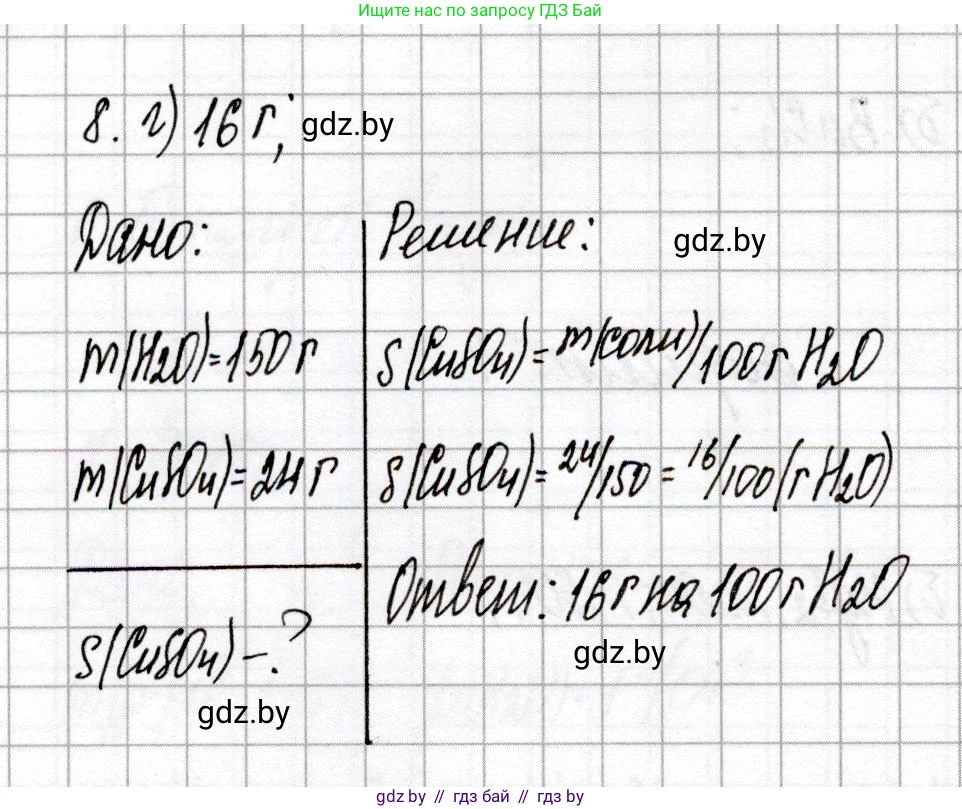 Ищите нас по запросу ГДЗ Бай
8. г) 16 г; gdz.by
Дано:
Решение:
gdz.by
m(H2O)=150 г
S(CuSO4)= m(соли)/100 г H2O
m(CuSO4)=24 г
S(CuSO4)= 24/150 = 16/100 (г H2O)
Ответ: 16 г на 100 г H2O
S(CuSO4) – ?
gdz.by
gdz.by
gdz.by // гдз бай // гдз by